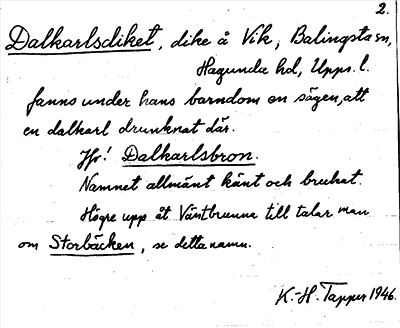 2.
Dalkarlsdiket, dike å Vik, Balingsta sn,
Hagunda hd, Upps. l.
fanns under hans barndom en sägen, att
en dalkarl drunknat där.
Jfr! Dalkarlsbron.
Namnet allmänt känt och brukat.
Högre upp åt Västbrunna till talar man
om Storbäcken, se detta namn.
K.-H. Tapper 1946.